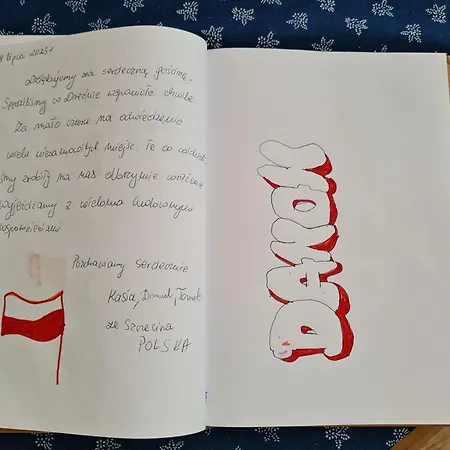 8 lipca 2023r
Dziękujemy za serdeczną gościnę.
Spędziliśmy w Dreźnie wspaniałe chwile
Za mało czasu na odwiedzenie
wielu niesamowitych miejsc. Te co widzie-
śmy zrobiły na nas olbrzymie wrażenie
Wyjeżdżamy z wieloma cudownymi
wspomnieniami
Pozdrawiamy serdecznie
Kasia, Daniel, Tomek
ze Szczecina
POLSKA
DANOK